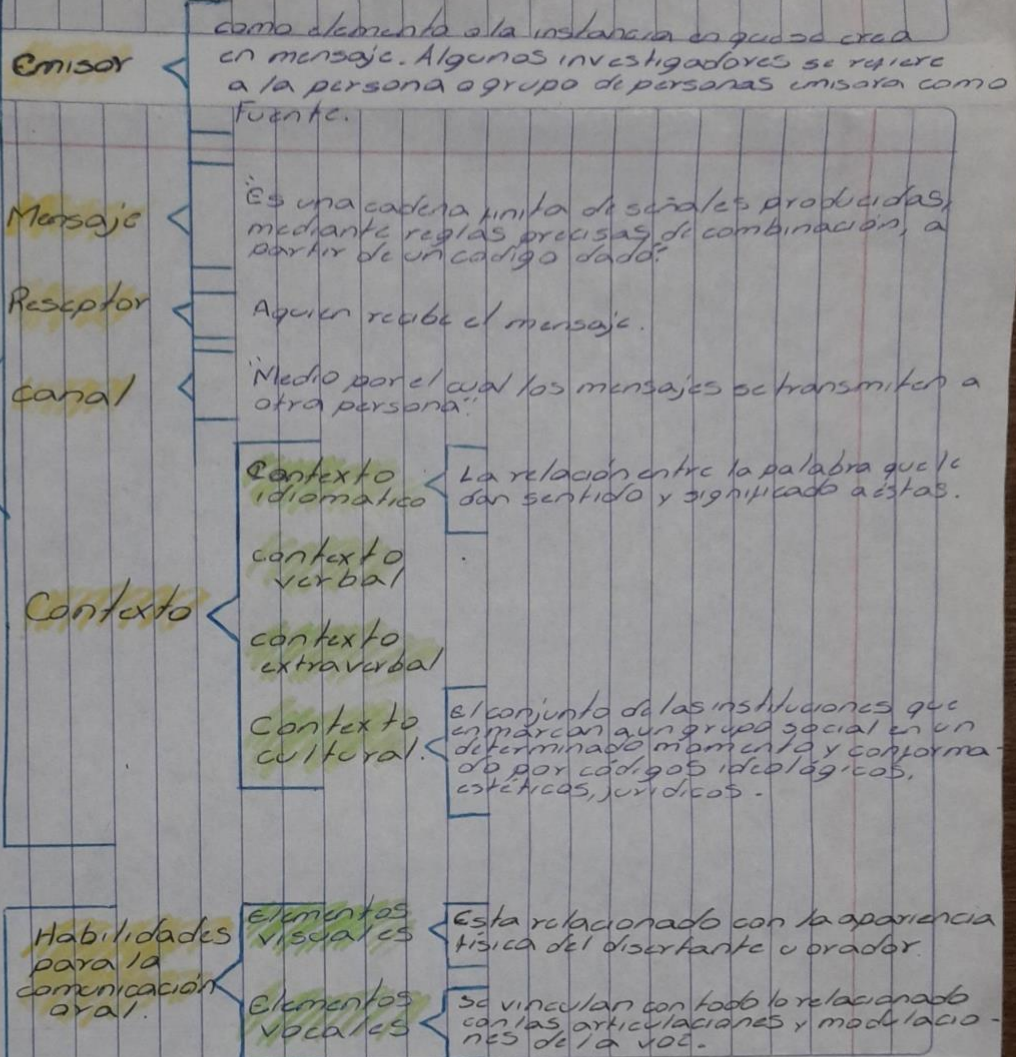 como elemento o la instancia en que se crea
Emisor
en mensaje. Algunos investigadores se refiere
a la persona o grupo de personas emisora como
Fuente.
Mensaje
"Es una cadena finita de señales producidas,
mediante reglas precisas de combinación, a
partir de un codigo dado."
Reseptor
Aquien recibe el mensaje.
canal
"Medio por el cual los mensajes se transmiten a
otra persona."
Contexto
Contexto
idiomatico
La relación entre la palabra que le
dan sentido y significado a éstas.
contexto
verbal
contexto
extraverbal
Contexto
cultural.
El conjunto de las instituciones que
enmarcan a un grupo social en un
determinado momento y conforma-
do por códigos ideológicos,
estéticos, jurídicos.
Habilidades
para la
comunicación
oral.
Elementos
visuales
Esta relacionado con la apariencia
física del disertante u orador.
Elementos
vocales
Se vinculan con todo lo relacionado
con las articulaciones y modulacio-
nes de la voz.